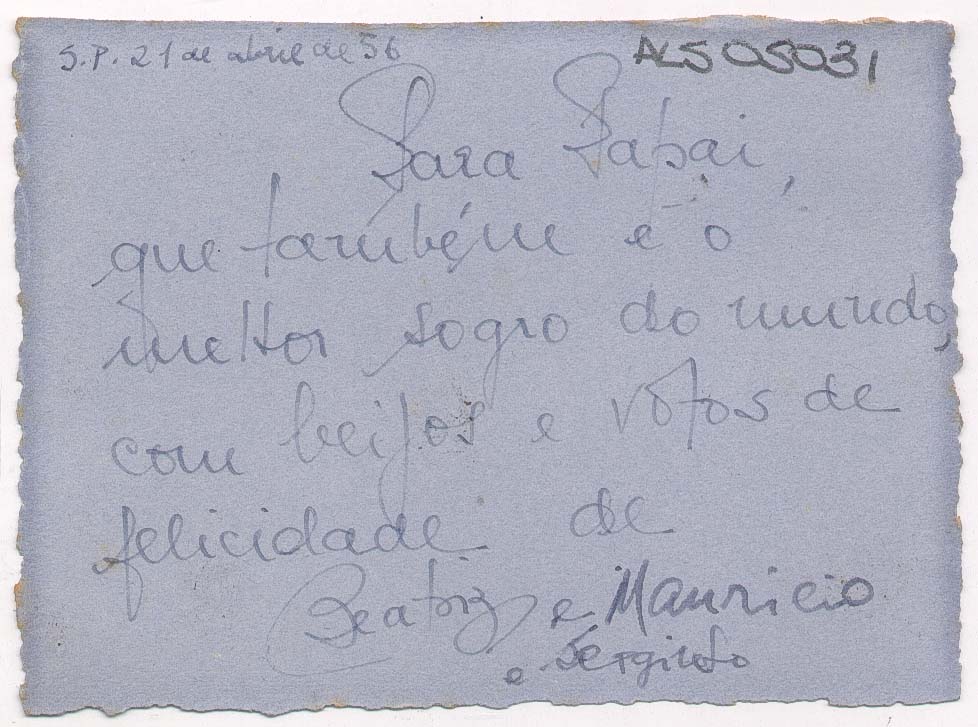 S.P. 21 de abril de 56
ALS 05031
Para Papai,
que também é o
melhor sogro do mundo,
com beijos e votos de
felicidade de
Beatriz e Mauricio
e Serginho